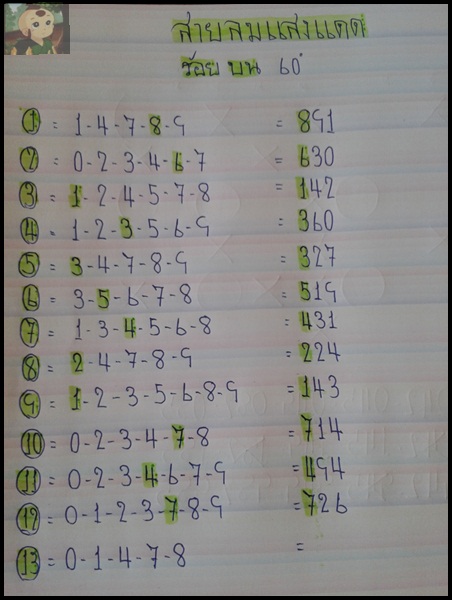 สายลมแสงแดด
ร้อย บน 60
1 = 1-4-7-8-9 = 891
2 = 0-2-3-4-6-7 = 630
3 = 1-2-4-5-7-8 = 142
4 = 1-2-3-5-6-9 = 360
5 = 3-4-7-8-9 = 327
6 = 3-5-6-7-8 = 519
7 = 1-3-4-5-6-8 = 431
8 = 2-4-7-8-9 = 224
9 = 1-2-3-5-6-8-9 = 143
10 = 0-2-3-4-7-8 = 714
11 = 0-2-3-4-6-7-9 = 494
12 = 0-1-2-3-7-8-9 = 726
13 = 0-1-4-7-8 =